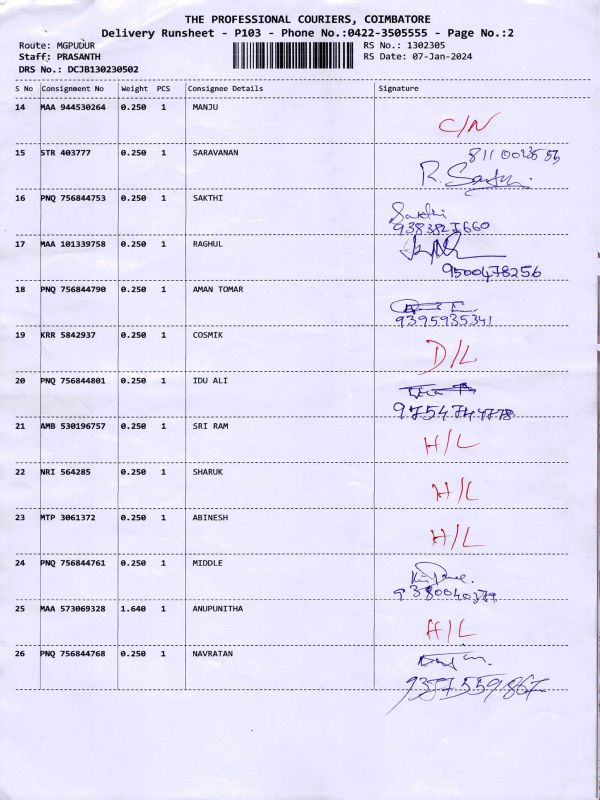 THE PROFESSIONAL COURIERS, COIMBATORE
Delivery Runsheet - P103 - Phone No.:0422-3505555 - Page No.:2
Route: MGPUDUR RS No.: 1302305
Staff: PRASANTH RS Date: 07-Jan-2024
DRS No.: DCJB130230502
S No Consignment No Weight PCS Consignee Details Signature
14 MAA 944530264 0.250 1 MANJU
C/N
15 STR 403777 0.250 1 SARAVANAN
16 PNQ 756844753 0.250 1 SAKTHI
Sakthi
17 MAA 101339758 0.250 1 RAGHUL
9500478256
18 PNQ 756844790 0.250 1 AMAN TOMAR
9395935341
19 KRR 5842937 0.250 1 COSMIK
D/L
20 PNQ 756844801 0.250 1 IDU ALI
9754744778
21 AMB 530196757 0.250 1 SRI RAM
H/L
22 NRI 564285 0.250 1 SHARUK
H/L
23 MTP 3061372 0.250 1 ABINESH
H/L
24 PNQ 756844761 0.250 1 MIDDLE
9380040379
25 MAA 573069328 1.640 1 ANUPUNITHA
H/L
26 PNQ 756844768 0.250 1 NAVRATAN